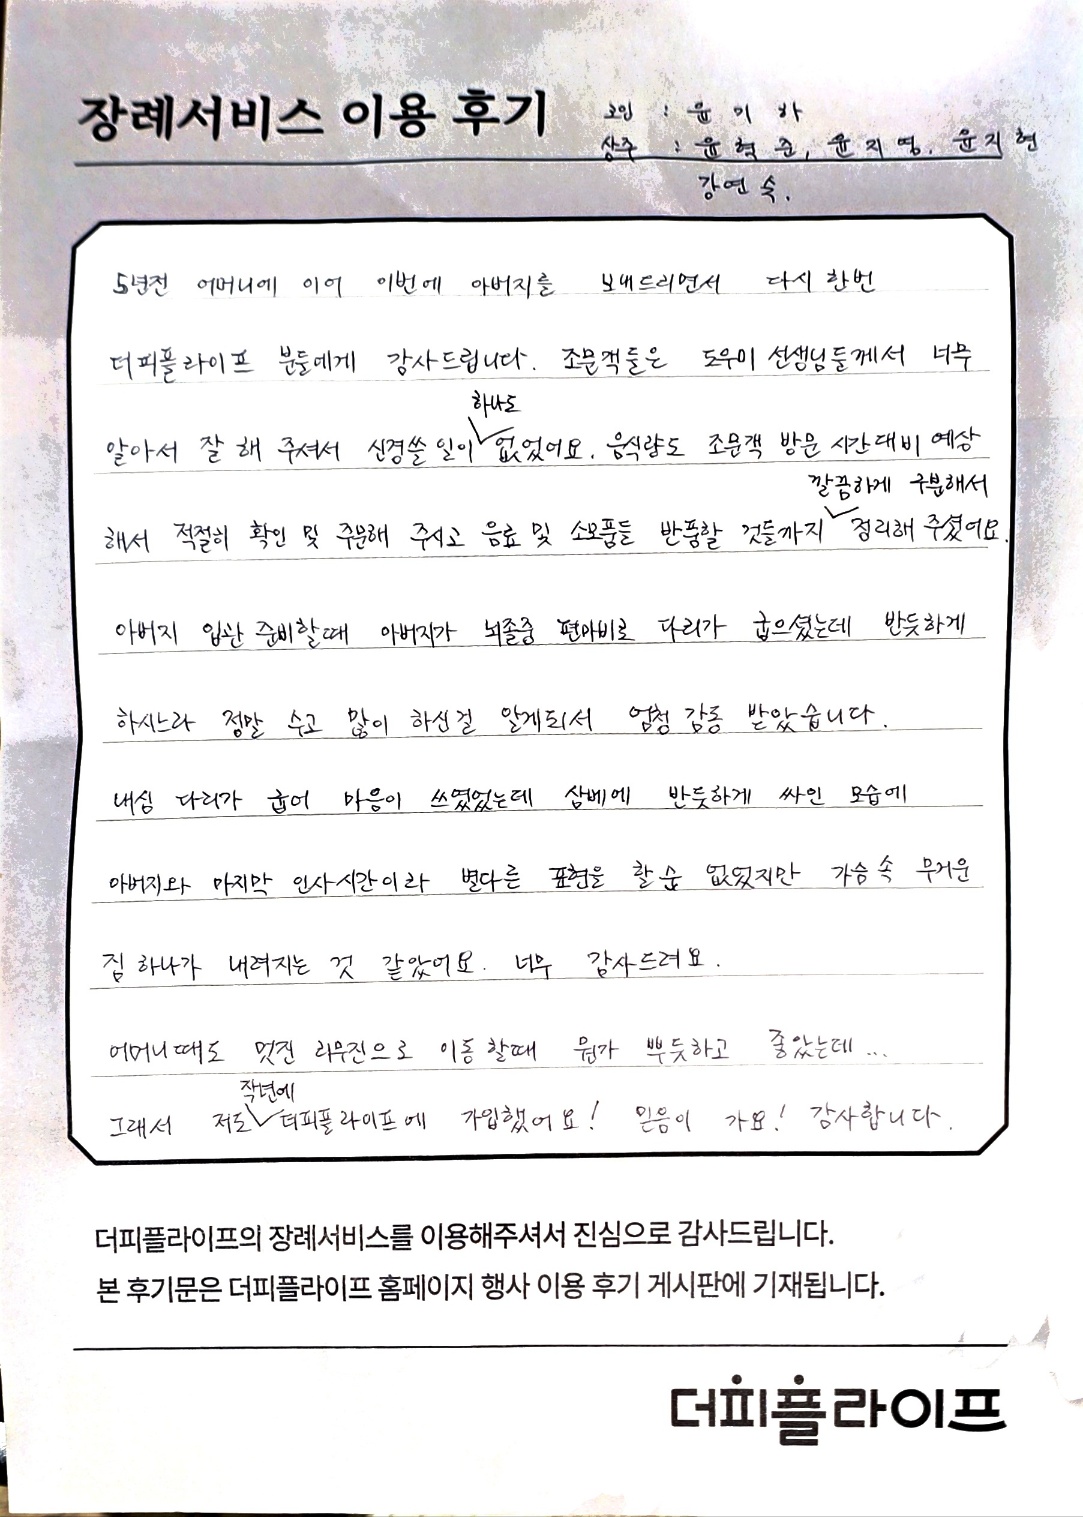 장례서비스 이용 후기
고인 : 윤기하
상주 : 윤혁준, 윤지영, 윤지현
강연숙.
5년전 어머니에 이어 이번에 아버지를 보내드리면서 다시 한번
더피플라이프 분들에게 감사드립니다. 조문객들은 도우미 선생님들께서 너무
하나도
알아서 잘 해 주셔서 신경쓸 일이 없었어요. 음식량도 조문객 방문 시간대비 예상
깔끔하게 구분해서
해서 적절히 확인 및 주문해 주시고 음료 및 소모품들 반품할 것들까지 정리해 주셨어요.
아버지 입관 준비할때 아버지가 뇌졸중 편마비로 다리가 굽으셨는데 반듯하게
하시느라 정말 수고 많이 하신걸 알게되서 엄청 감동 받았습니다.
내심 다리가 굽어 마음이 쓰였었는데 삼베에 반듯하게 싸인 모습에
아버지와 마지막 인사시간이라 별다른 표현을 할순 없었지만 가슴 속 무거운
짐 하나가 내려지는 것 같았어요. 너무 감사드려요.
어머니때도 멋진 리무진으로 이동할때 뭔가 뿌듯하고 좋았는데...
작년에
그래서 저도 더피플라이프에 가입했어요! 믿음이 가요! 감사합니다.
더피플라이프의 장례서비스를 이용해주셔서 진심으로 감사드립니다.
본 후기문은 더피플라이프 홈페이지 행사 이용 후기 게시판에 기재됩니다.
더피플라이프